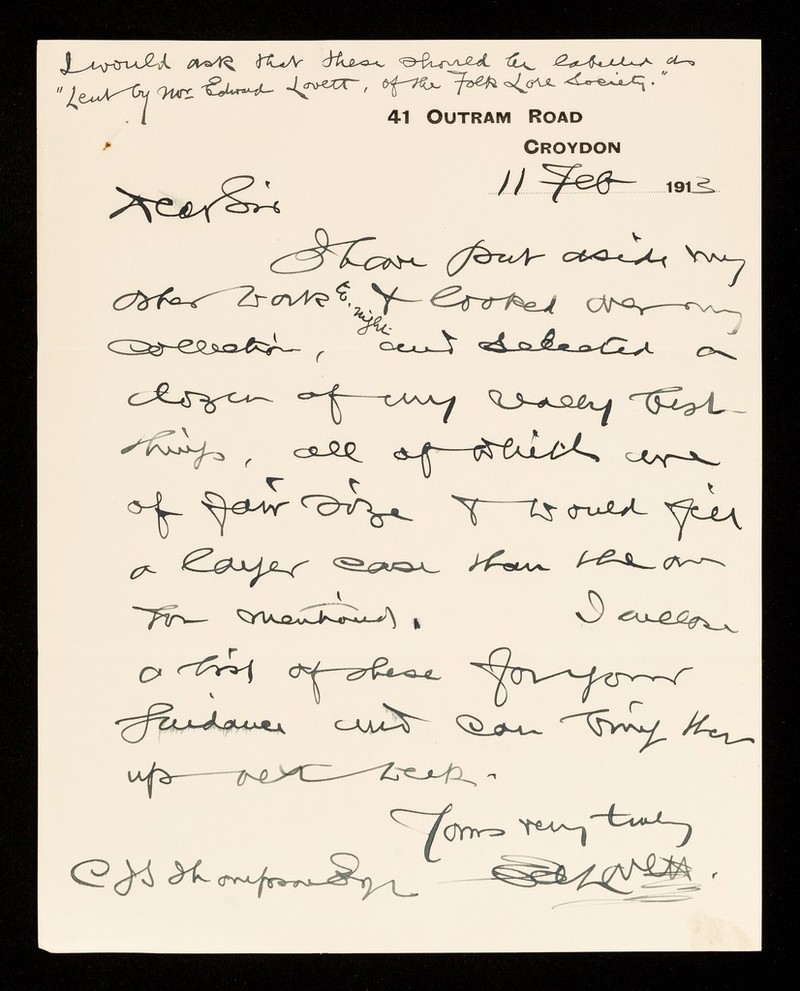 I would ask that these should be labelled as
"Lent by Mr. Edward Lovett, of the Folk Lore Society."
41 OUTRAM ROAD
CROYDON
11 Feb 1913
Dear Sir
I have put aside my
other work to.night & looked over my
collection, and selected a
dozen of my really best
things, all of which are
of fair size & would fill
a larger case than the one
you mentioned. I enclose
a list of these for your
guidance and can bring them
up next week.
Yours very truly
Edw Lovett.
C J S Thompson Esq